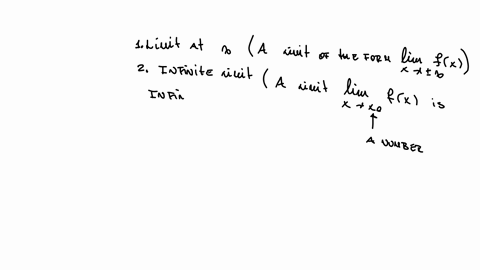 1. Limit at ∞ (A limit of the form lim f(x))
x → ± ∞
2. Infinite limit (A limit lim f(x) is
x → x₀
Infin
↑
A number